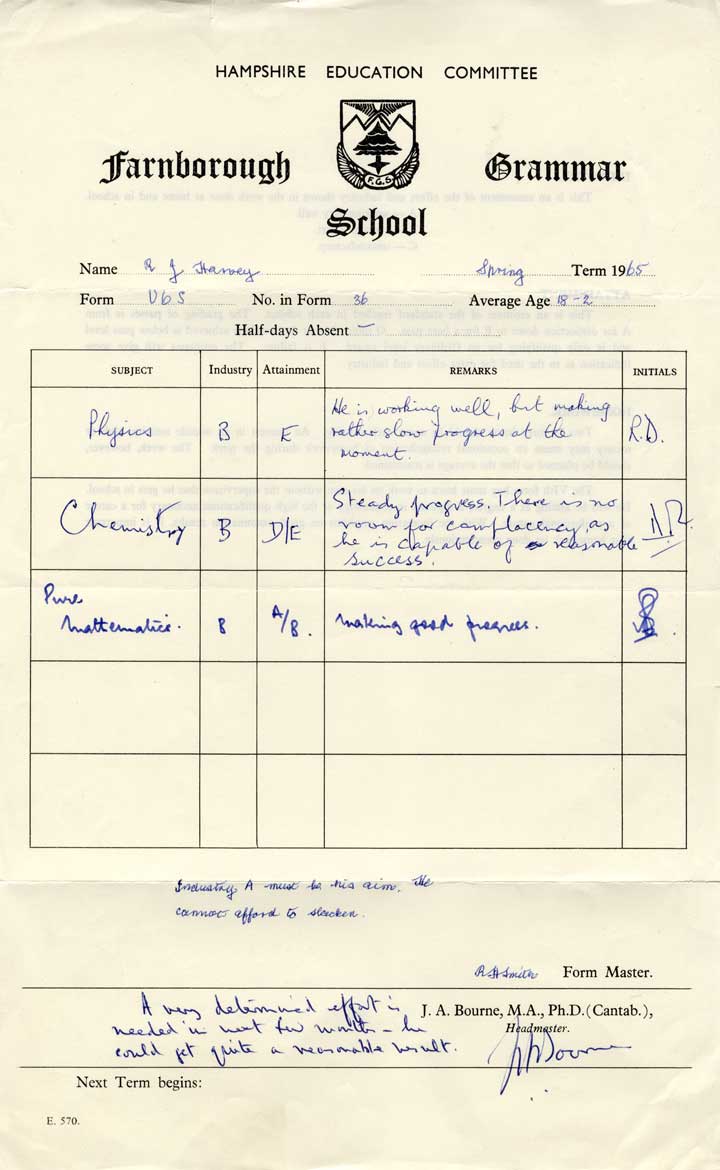 HAMPSHIRE EDUCATION COMMITTEE
Farnborough Grammar
F.G.S.
School
Name R J Harvey Spring Term 1965
Form U6S No. in Form 36 Average Age 18-2
Half-days Absent –
SUBJECT Industry Attainment REMARKS INITIALS
Physics B E He is working well, but making
rather slow progress at the
moment. R.D.
Chemistry B D/E Steady progress. There is no
room for complacency as
he is capable of reasonable
success.
Pure
Mathematics. B A/B. Making good progress.
Industry A must be his aim. He
cannot afford to slacken.
R H Smith Form Master.
A very determined effort is
needed in next few months – he
could get quite a reasonable result.
J. A. Bourne, M.A., Ph.D.(Cantab.),
Headmaster.
J A Bourne
Next Term begins:
E. 570.